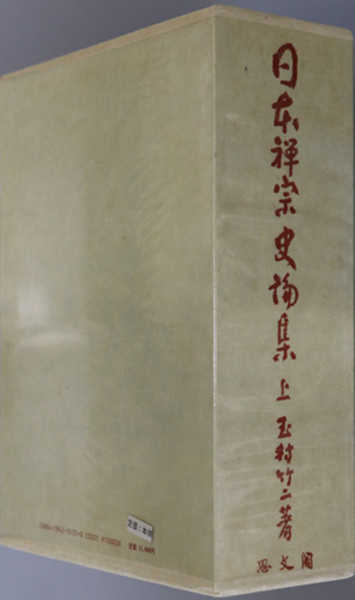 日本禅宗史論集 上 玉村竹二著
思文閣